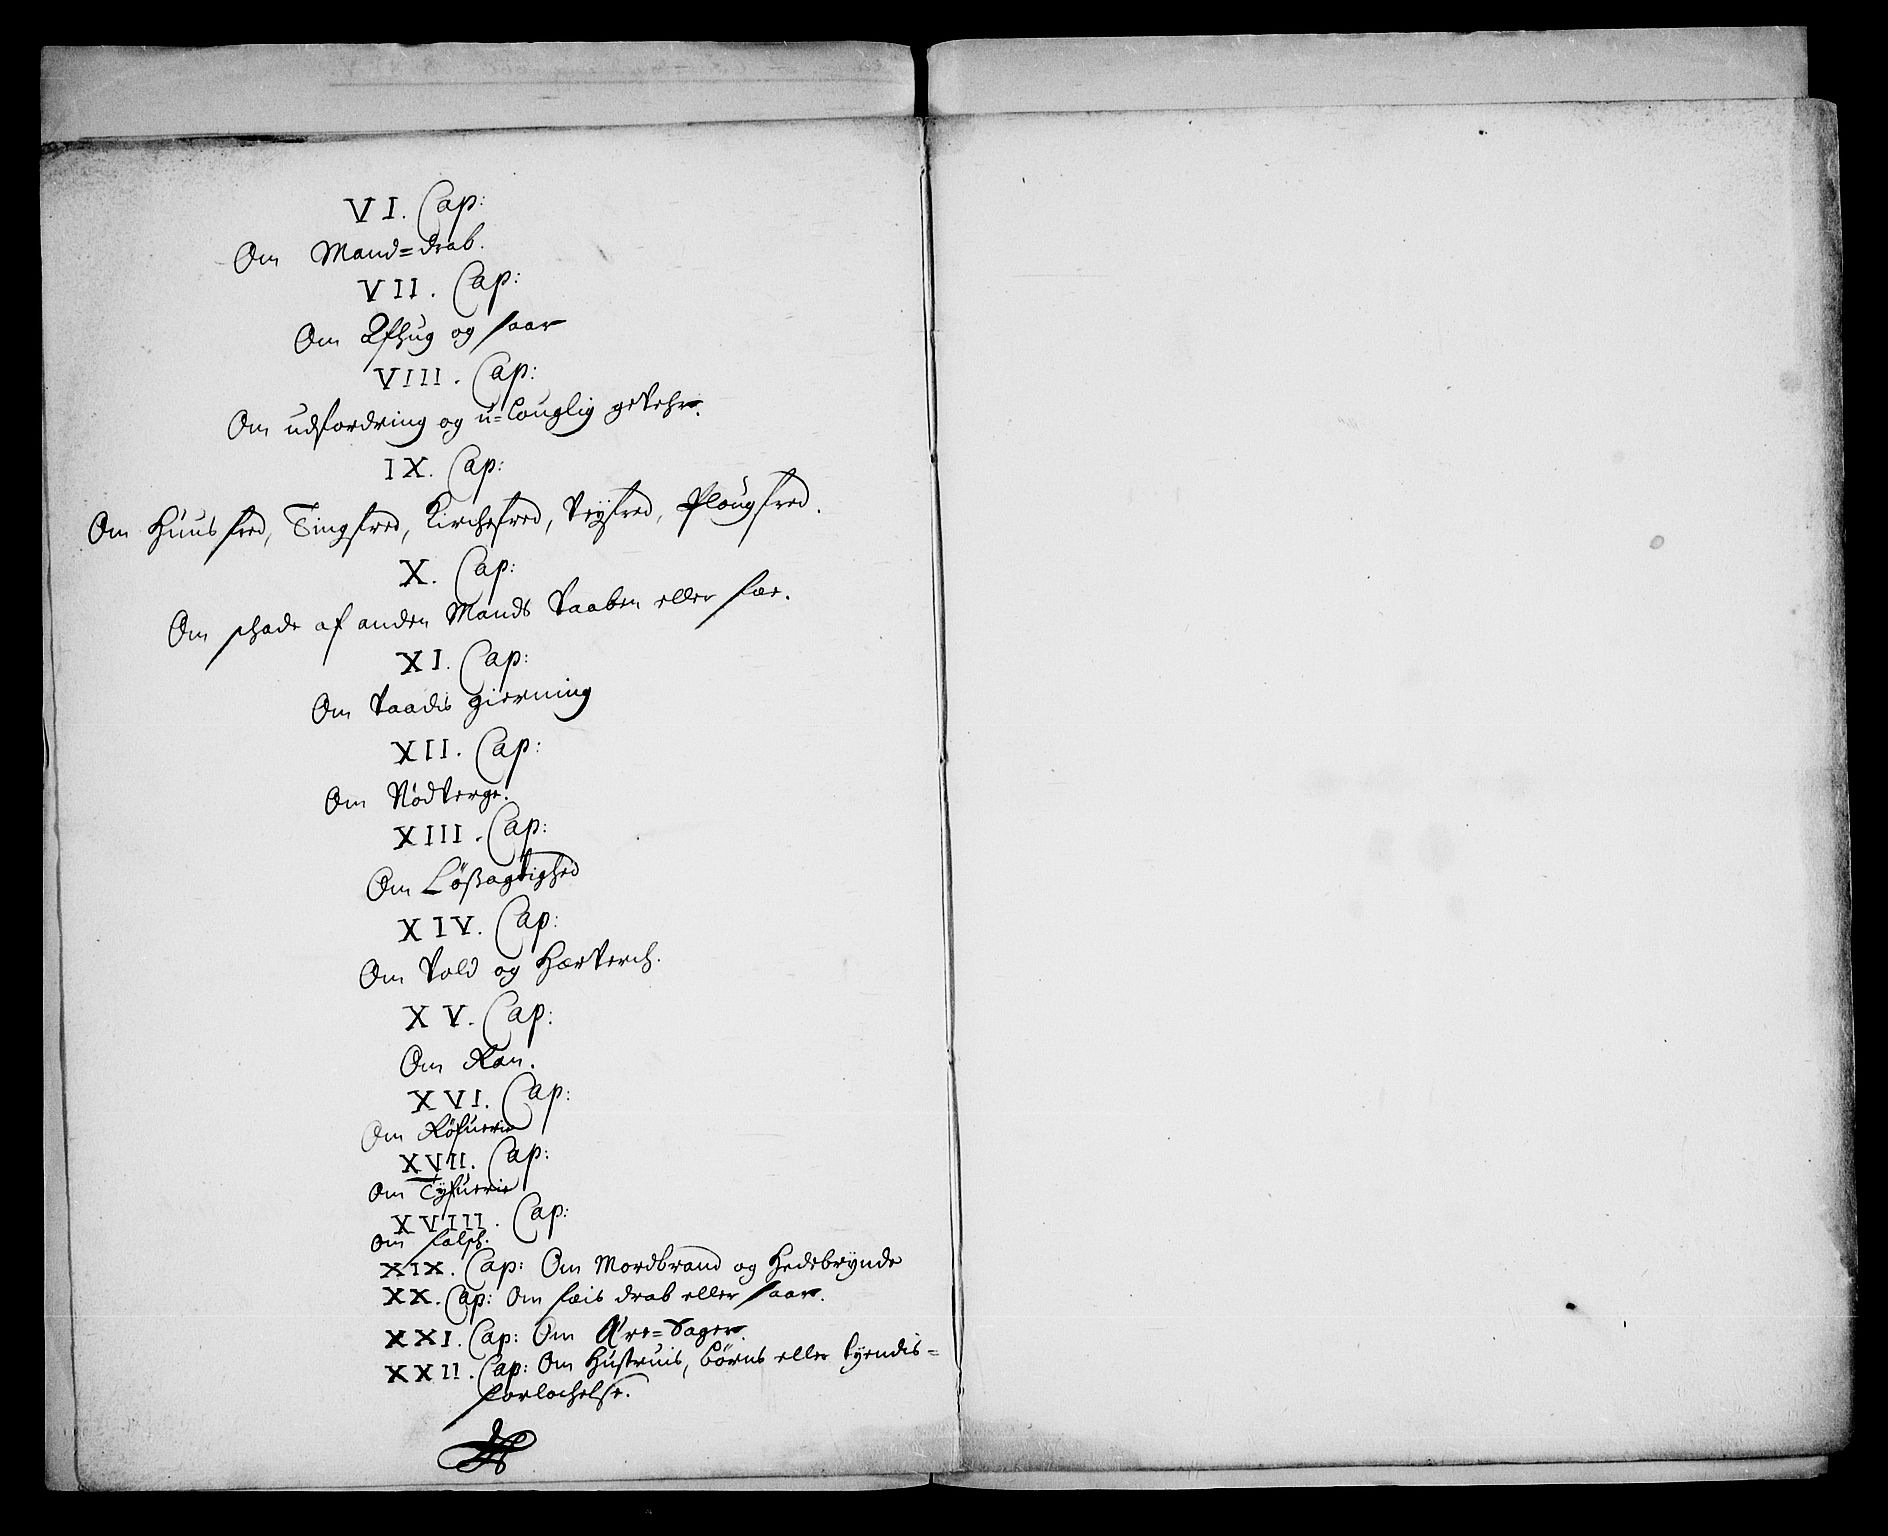 VI. Cap:
Om Mand=drab.
VII. Cap:
Om Afhug og saar
VIII. Cap:
Om udfordring og u=louglig gevehr.
IX. Cap:
Om Huusfred, Tingfred, Kirchefred, Veyfred, Plougfred.
X. Cap:
Om schade af anden Mands Vaaben eller fæe.
XI. Cap:
Om Vaadis gierning
XII. Cap:
Om Nødverge.
XIII. Cap:
Om Løßagtighed
XIV. Cap:
Om Vold og Hærverch.
XV. Cap:
Om Ran.
XVI. Cap:
Om Røfuerie
XVII. Cap:
Om Tyfuerie
XVIII. Cap:
Om falsch.
XIX. Cap: Om Mordbrand og Hedebrynde
XX. Cap: Om fæis drab eller saar.
XXI. Cap: Om Ære=Sager.
XXII. Cap: Om Hustruis, børns eller tyendis=
forlochelse.